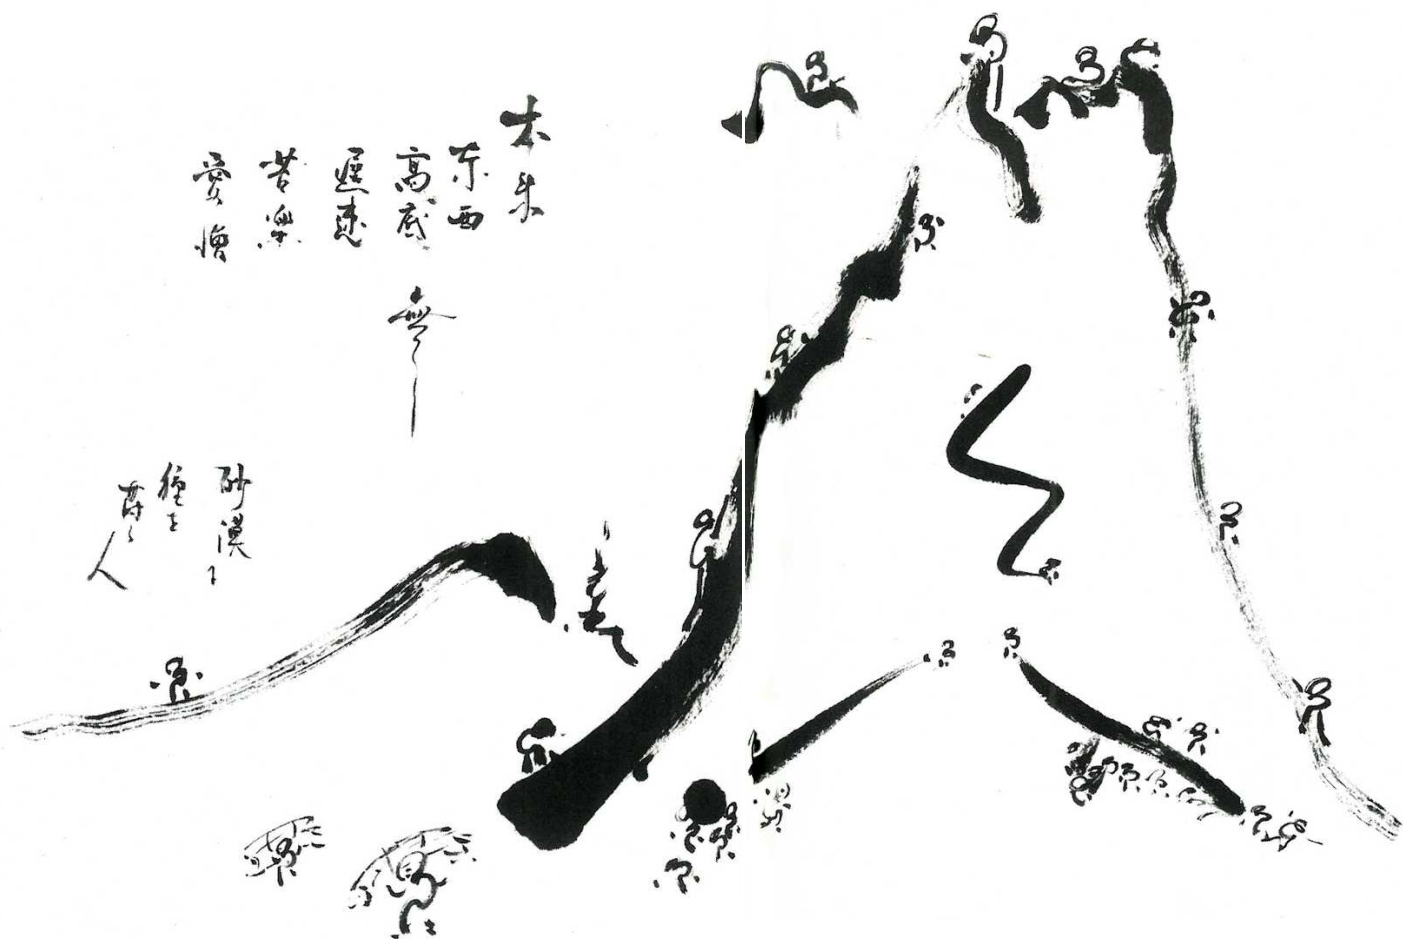 本来
東西
高底
遅速
苦楽
愛憎
無し
砂漠に
種を
蒔く人